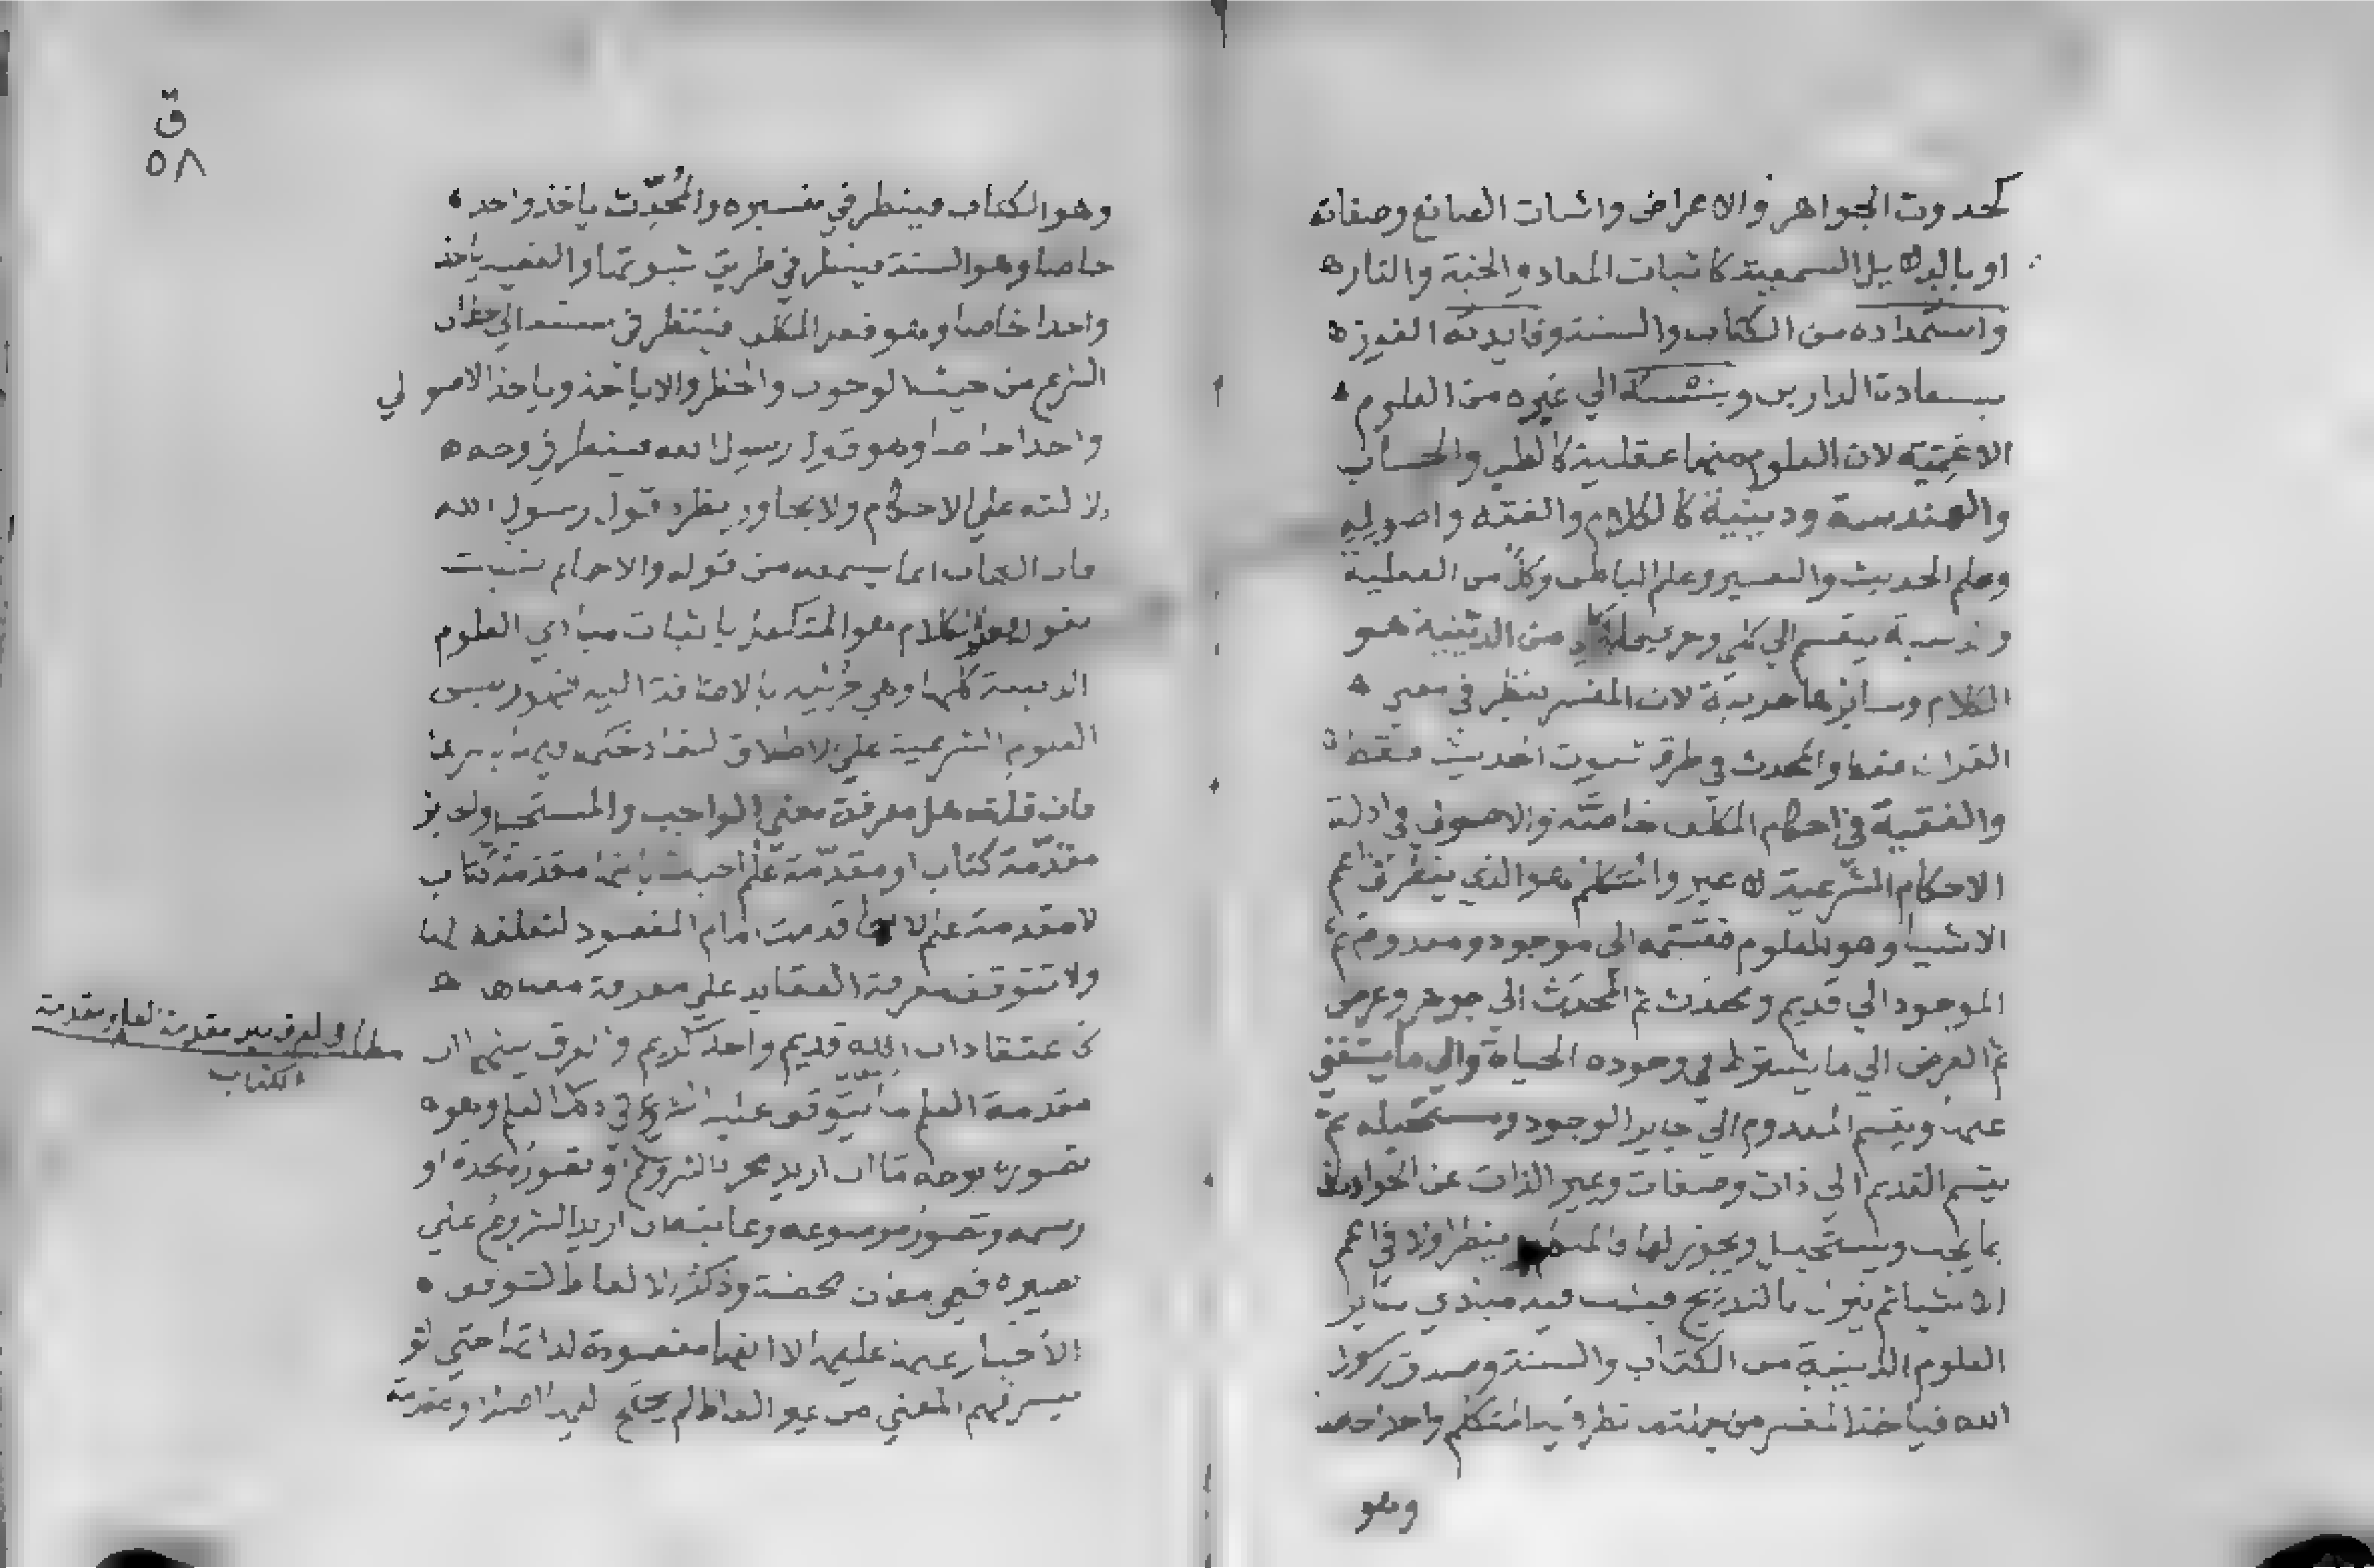 كحدوث الجواهر والاعراض واثبات الصانع وصفاته
او بالدلايل السمعية كاثبات المعاد والجنة والنار
واستمداده من الكتاب والسنة وفايدته الفوز
بسعادة الدارين ونسبته الي غيره من العلوم
لان العلوم منها عقلية كالطب والحساب
والهندسة ودينية كالكلام والفقه واصوله
وعلم الحديث والتفسير وعلم الباطن وكلّ من العقلية
و ينقسم الي كلي من الدينية هو
الكلام وسايرها جزيية لان المفسر ينظر في معني
القران فقط والمحدث في طرق ثبوت الحديث فقط
والفقيه في احكام المكلف خاصّة والاصولي في ادلة
الاحكام الشرعية لا غير والمتكلم هو الذي ينظر في اعم
الاشيا وهو المعلوم فقسّمه الي موجود ومعدوم ثم
الموجود الي قديم ومحدَث ثم المحدَث الي جوهر وعرض
ثم العرض الي ما يشترط في وجوده الحياة والي ما يستغني
عنها ويقسم المعدوم الي جايز الوجود ومستحيله ثم
يقسم القديم الي ذات وصفات ويميز الذات عن الحوادث
بما يجب ويستحيل ويجوز لها والمتكلم ينظر اولا في اعم
الاشيا ثم ينزل بالتدريج فيثبت فيه مبادي ساير
العلوم الدينية من الكتاب والسنة وصدق رسول
الله فياخذ المفسر من جملة ما نظر فيه المتكلم واحدا خاصا
وهو
ق
٥٨
وهو الكتاب فينظر في تفسيره والمُحدّث ياخذ واحد
خاصا وهو السنة فينظر في طريق ثبوتها والفقيه ياخذ
واحدا خاصا وهو فعل المكلف فينظر في نسبته الي خطاب
الشرع من حيث الوجوب والحظر والاباحة وياخذ الاصولي
واحدا خاصا وهو قول رسول الله فينظر في وجه
دلالته علي الاحكام ولا يجاوز نظره قول رسول الله
فان الكتاب انما يسمعه من قوله والاحكام تثبت
بقوله الكلام هو المتكفل باثبات مبادي العلوم
الدينية كلها وهي جزئية بالاضافة اليه فهو رييس
العلوم الشرعية علي الاطلاق لنفاذ حكمه فيها باسرها
فان قلت هل معرفة معني الواجب والمستحيل والجايز
مقدّمة كتاب او مقدّمة علم اجيب بانها مقدمة كتاب
لا مقدمة علم لانها قدمت امام المقصود لتعلقه بها
ولا تتوقف معرفة العقايد علي معرفة معناها
كاعتقاد ان الله قديم واحد كريم والفرق بينهما ان
مقدمة العلم ما يتوقف عليه الشروع في ذلك العلم وهو
تصوره بوجه ما ان اريد مجرد الشروع او تصوره بحده او
رسمه وتصور موضوعه وغايته ان اريد الشروع علي
بصيره فهي معان محضة وذكر الالفاظ لتوقف
الاخبار عنها عليها لا انها مقصودة لذاتها حتي لو
تيسر فهم المعني من غير الفاظ لم يحتج لها اصلا ومقدمة
مطلب في الفرق بين مقدمة العلم ومقدمة
الكتاب